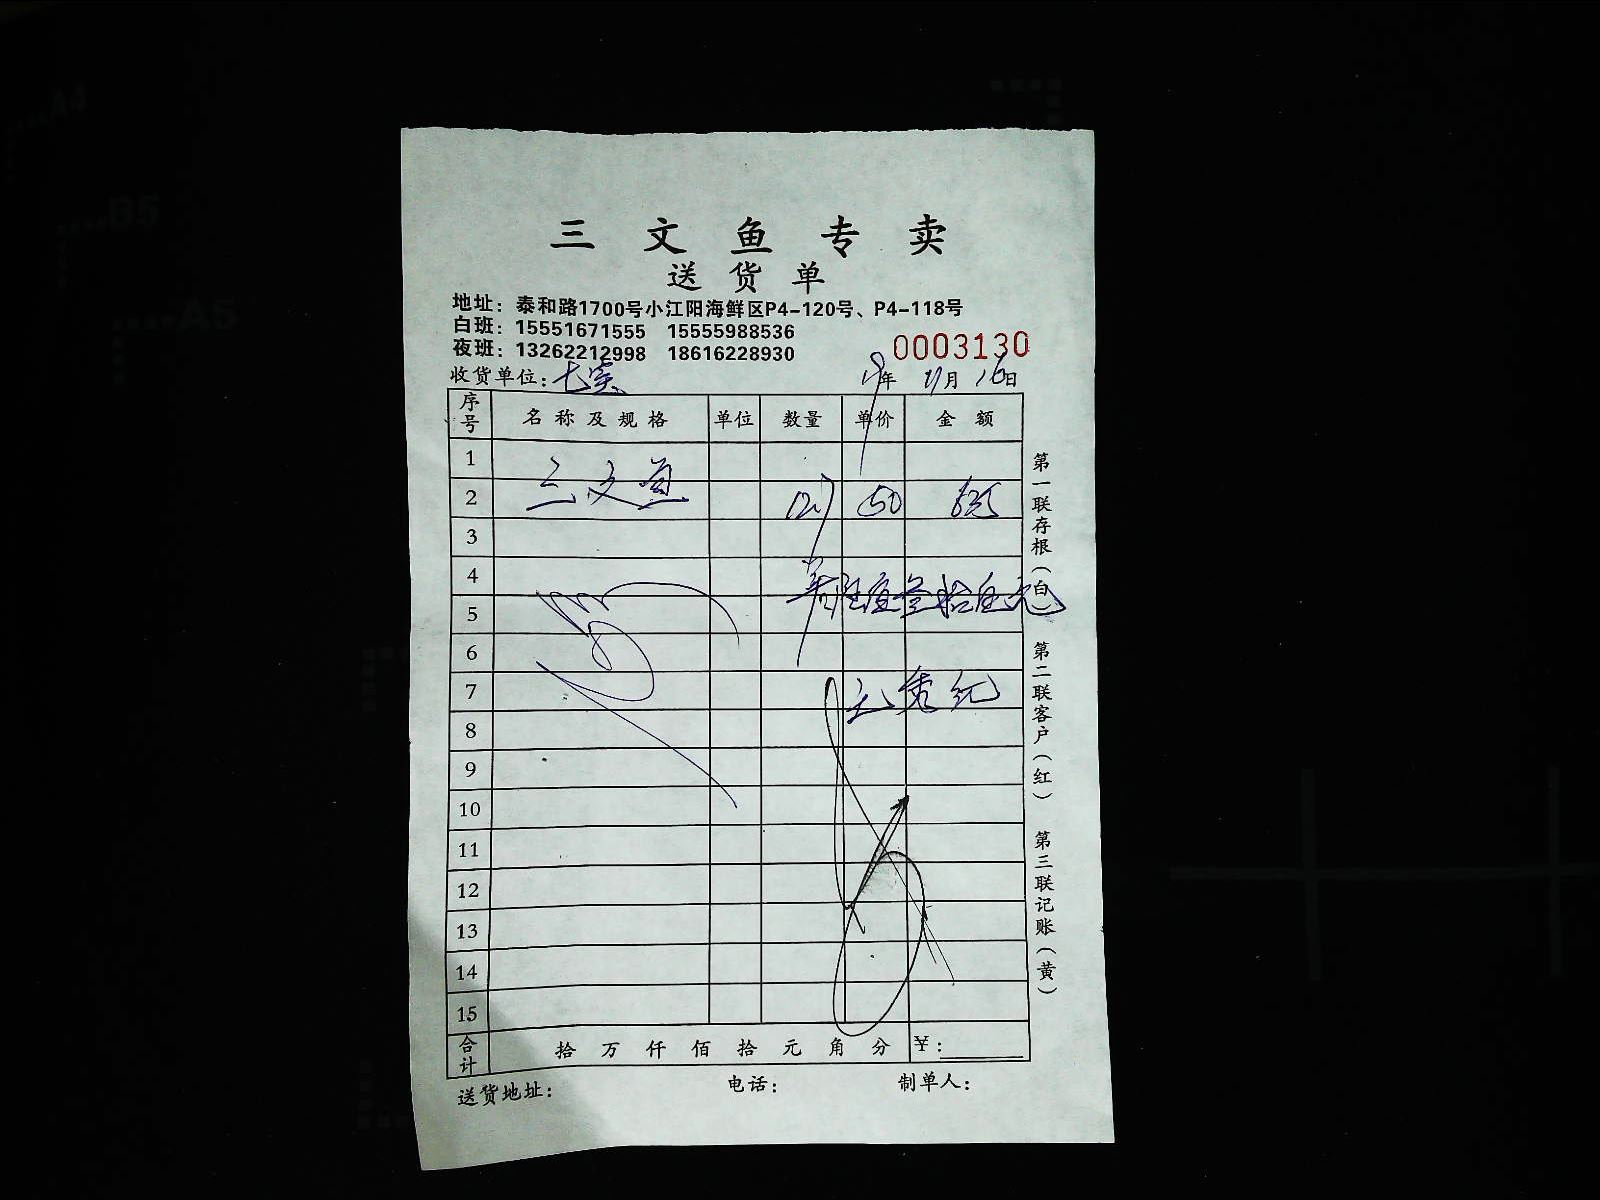 三文鱼专卖
送货单
地址：泰和路1700号小江阳海鲜区P4-120号、P4-118号
白班：15551671555 15555988536
夜班：13262212998 18616228930
0003130
收货单位：七宝 年 11月 16日
序号 名称及规格 单位 数量 单价 金额
1
2 三文鱼 50
3
4
5 陆佰叁拾伍元
6
7
8
9
10
11
12
13
14
15
合计 拾 万 仟 佰 拾 元 角 分 ¥：
送货地址： 电话： 制单人：
第一联存根（白） 第二联客户（红） 第三联记账（黄）
A4
B5
A5